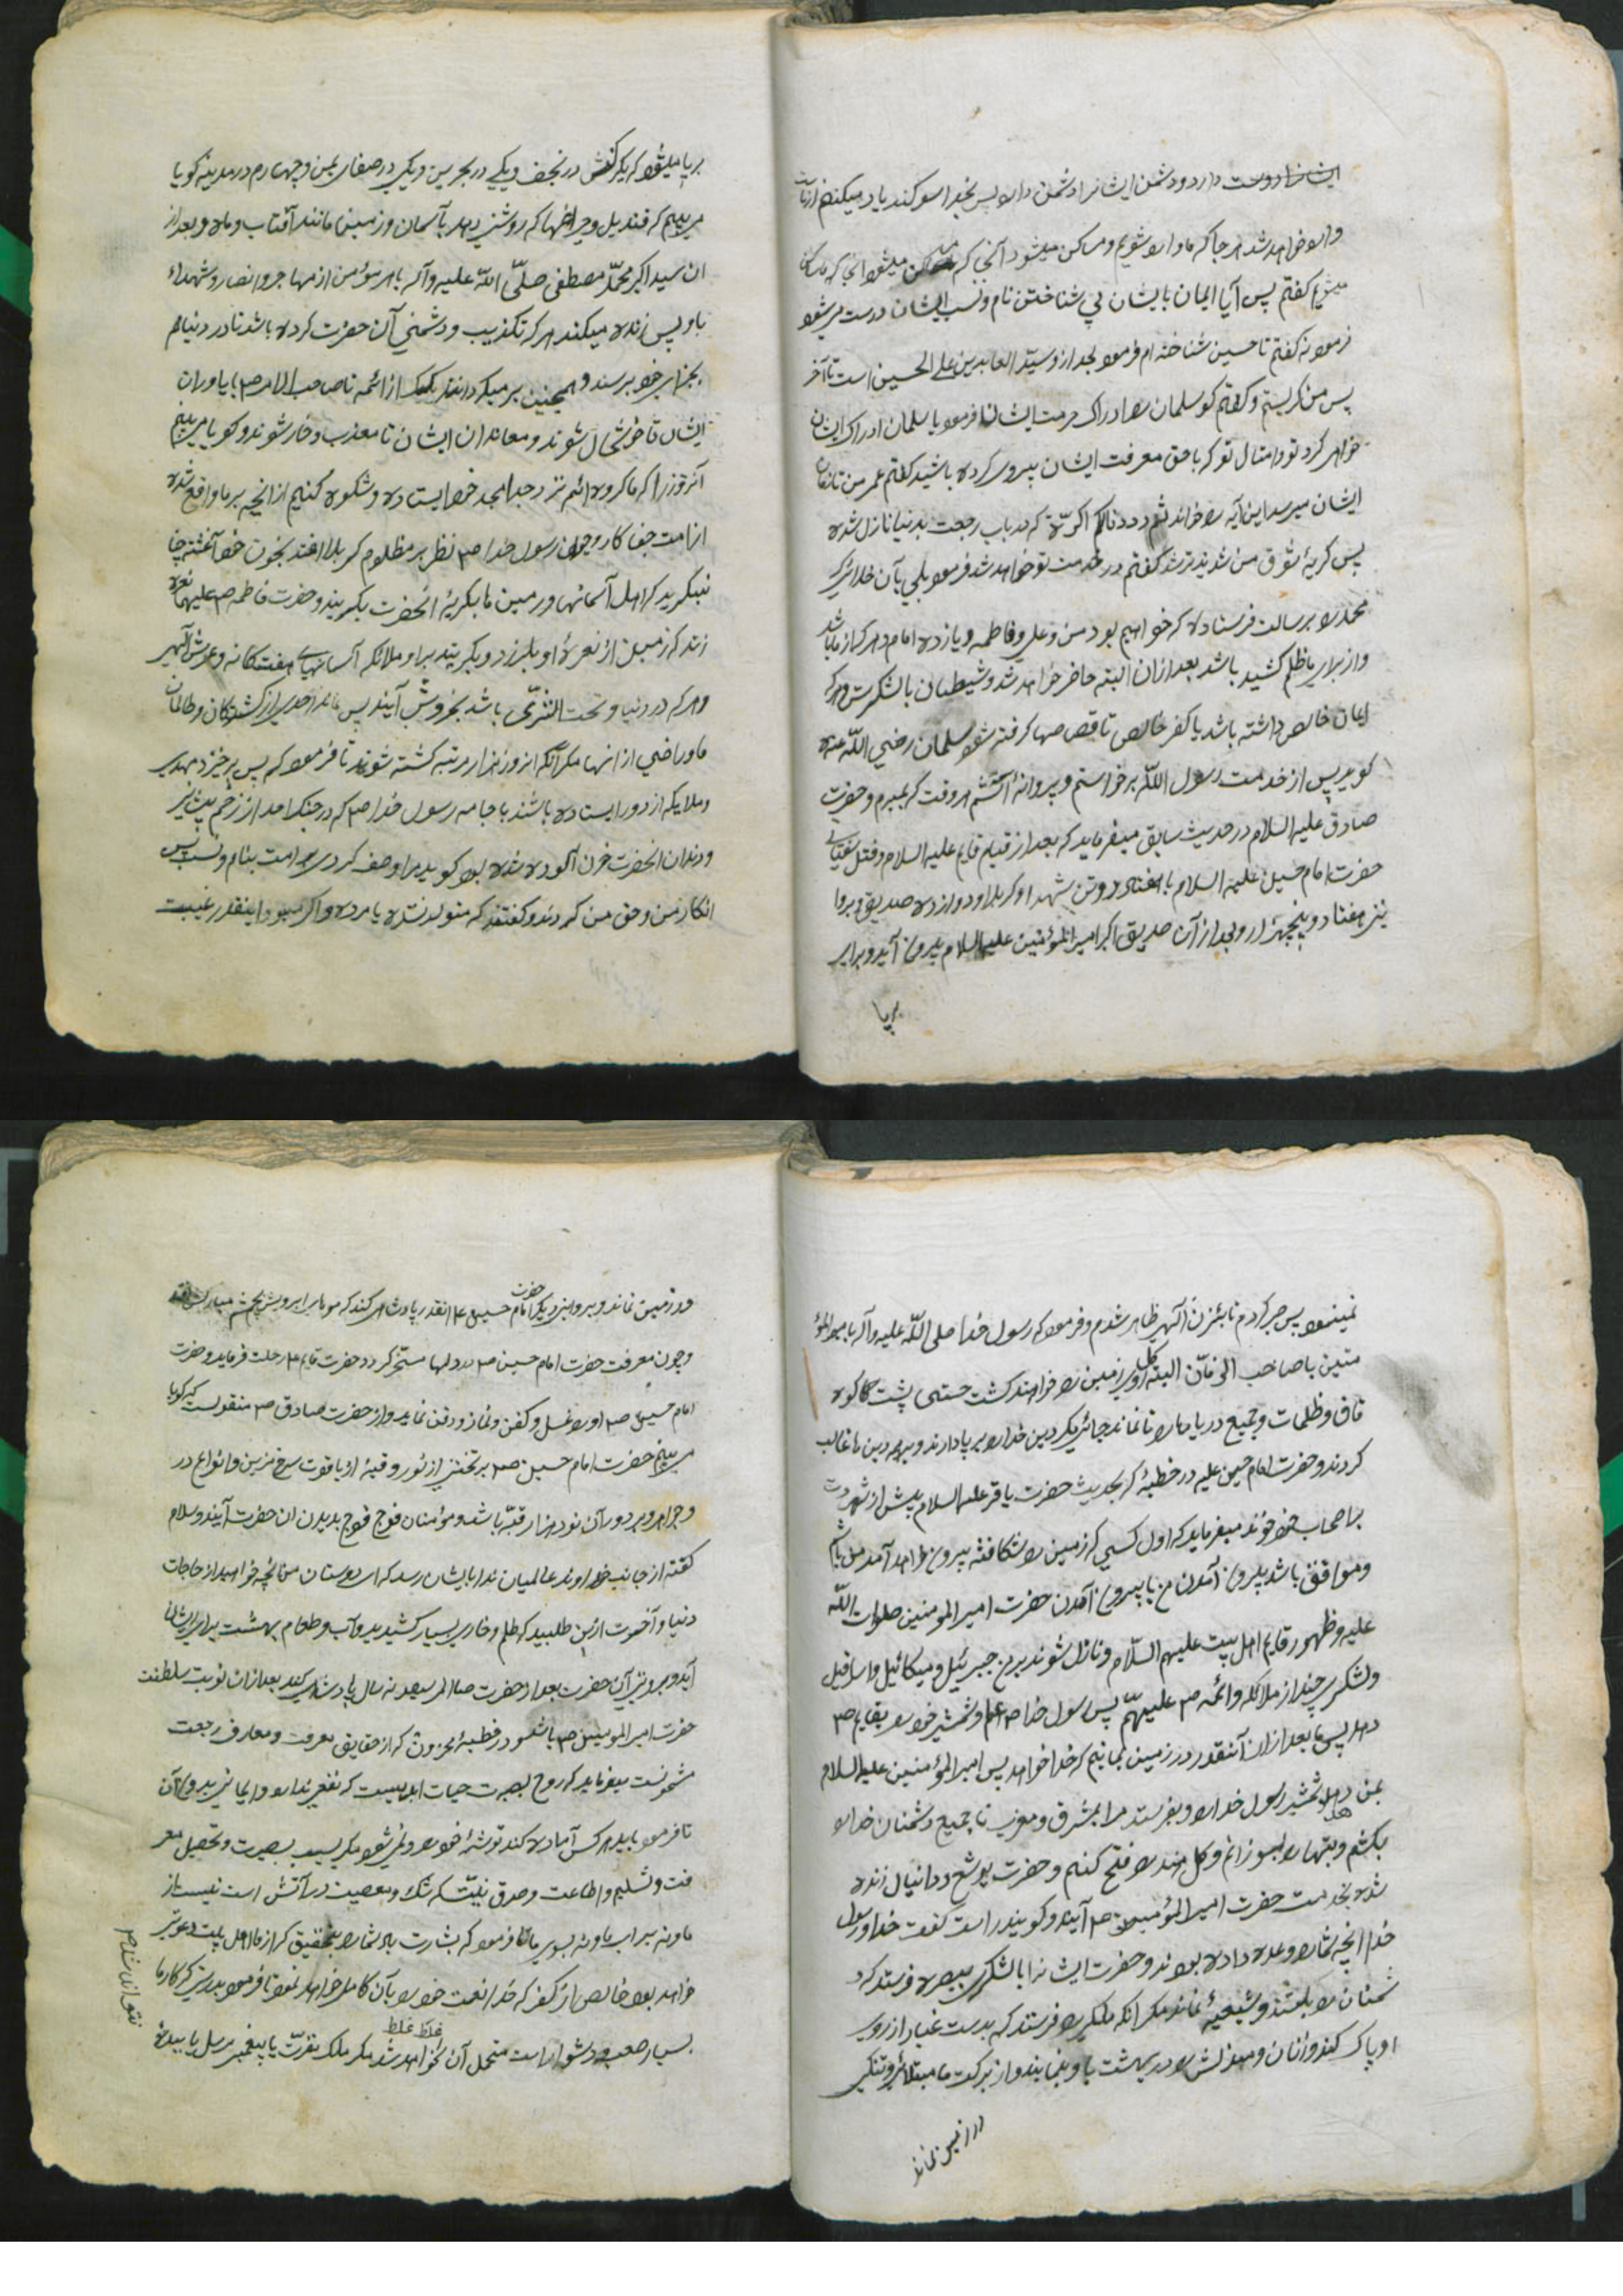 ایشانرا دوست دارد و دشمن ایشانرا دشمن دارد پس بخدا سوکند یاد میکنم از ماست
وارد خواهد شد هر جا که ما وارد شویم و ساکن میشود آنجا که ما ساکن
میشویم کفتم پس آیا ایمان بایشان بی شناختن نام و نسب ایشان درست میشود
فرمود نه کفتم تا حسین شناخته ام فرمود بعد از و سیّد العابدین علی الحسین است تا آخر
پس من کریستم و کفتم کو سلمان را ادراک حرمت ایشان فرمود یا سلمان ادراک ایشان
خواهی کرد تو و امثال تو که با حق معرفت ایشان پیروی کرده باشید کفتم عمر من تا زمان
ایشان میرسد این آیه را خواند ثم رددنا لکم الکرّة که در باب رجعت بدنیا نازل شده
پس کریۀ شوق من شدیدتر شد کفتم در خدمت تو خواهد شد فرمود بلی بآن خدائی که
محمد را برسالت فرستاده که خواهیم بود من و علی و فاطمه و یازده امام و هر که از ما باشد
و از برای ما ظلم کشید باشد بعد از ان البته حاضر خواهد شد و شیطان با لشکرش و هر که
ایمان خالص داشته باشد یا کفر خالص تا قصاصها کرفته شود سلمان رضی اللّه عنه
کوید پس از خدمت رسول اللّه برخواستم و پروا نداشتم هر وقت که بمیرم و حضرت
صادق علیه السلام در حدیث سابق میفرماید که بعد از قیام قایم علیه السلام و قتل سفیانی
حضرت امام حسین علیه السلام با هفتاد و دو تن شهداء کربلا و دوازده صدیق و بروا
یتی هفتاد و پنجهزار و بعد از آن صدیق اکبر امیر المؤمنین علیه السلام بیرون آید و برای
برپا
برپا میشود که یک رکنش در نجف و یکی در بحرین و یکی در صنعای یمن و چهارم در مدینه کویا
می بینم که قندیل و چراغها که روشنی دهد بآسمان و زمین مانند آفتاب و ماه و بعد از
ان سید اکبر محمّد مصطفی صلّی اللّه علیه و آله با هر مؤمن از مهاجر و انصار و شهداء
با و پس زنده میکند هر که تکذیب و دشمنی آن حضرت کرده باشد تا در دنیا هم
بجزای خود برسند و همچنین بر میکردانند یک یک از ائمه تا صاحب الامر ص با یاوران
ایشان تا خوشحال شوند و معاندان ایشان تا معذب و خار شوند و کویا می بینم
آنروز را که ما کروه ائمه نزد جد امجد خود ایستاده و شکوه کنیم از آنچه بر ما واقع شده
از امت جفا کار و چون رسول خدا ص نظر بر مظلوم کربلا افتد بخون خود آغشته چنا
نبکرید که اهل آسمانها و زمین ها بکریۀ انحضرت بکریند و حضرت فاطمه ص علیها نعرۀ
زند که زمین از نعرۀ او بلرزد و بکریند برا و ملائکه آسمانهای هفت کانه و عرش الهی
و هر که در دنیا و تحت الثری باشد بخروش آیند پس نماند احدی از کشندکان و ظالمان
ما و راضی از انها مکر آنکه انروز هزار مرتبه کشته شوند تا فرمود که پس برخیزد مهدی
و ملایکه از دور ایستاده باشند با جامه رسول خدا ص که در جنک احد از زخم پیشانی
و دندان انحضرت خون آلوده شده بود کوید مرا وصف کردی برامت بنام و نسب پس
انکار من و حق من کردند و کفتند که متولد نشده یا مرده و اکر میبود اینقدر غیبت
نمینمود پس صبر کردم تا بئذن الهی ظاهر شدم و فرمود که رسول خدا صلی اللّه علیه و آله با میر المؤ
منین با صاحب الزمان البته کل روی زمین را خواهند کشت حتی پشت کاکوه
قاف و ظلمات و جمیع دریاها را تا نماند جائی مکر دین خدا را بر پا دارند و بر همه دین ها غالب
کردند و حضرت امام حسین علیه در خطبۀ که بحدیث حضرت باقر علیه السلام پیش از شهادت
بر اصحاب خود خواند میفرماید که اول کسی که زمین را شکافته بیرون خواهد آمد من باشم
و موافق باشد بیرون آمدن من با بیرون آمدن حضرت امیر المومنین صلوات اللّه
علیه و ظهور قایم اهل بیت علیهم السّلام و نازل شوند بر من جبرئیل و میکائیل و اسرافیل
و لشکری چند از ملائکه و ائمه ص علیهمّ پس رسول خدا ص علم و شمشیر خود را بقایم ص
دهد پس ما بعد از ان آنقدر در زمین بمانیم که خدا خواهد پس امیر المؤمنین علیه السلام
بمن دهد شمشیر رسول خدا را و بفرستد مرا بمشرق و مغرب تا جمیع دشمنان خدا را
بکشم و بتها را بسوزانم و کل هند را فتح کنم و حضرت یوشع و دانیال زنده
شده بخدمت حضرت امیر المؤمنین ص آیند و کویند راست کفت خدا و رسول
خدا آنچه شما را وعده داده بودند و حضرت ایشانرا با لشکری ببصره فرستد که د
شمنان را بکشند و شیعۀ نماند مکر انکه ملکی را فرستد که بدست غبار از روی
او پاک کند و زنان و منزلش را در بهشت باو بنمایند و از برکت ما مبتلائی و تنکی
در زمین نماند
در زمین نماند و بروایتی دیکر حضرت امام حسین ع انقدر پادشاهی کند که موهای ابرویش بچشم مبارکش افتد
و چون معرفت حضرت امام حسین ص در دلها مستقر کردد حضرت قایم ص رحلت فرماید و حضرت
امام حسین ص او را غسل و کفن و نماز و دفن نماید و از حضرت صادق ص منقولست که کویا
می بینم حضرت امام حسین ص بر تختی از نور و قبۀ از یاقوت سرخ مزین و انواع در
و جواهر و بر دور آن نود هزار قبّه باشد و مؤمنان فوج فوج بدیدن ان حضرت آیند و سلام
کفته از جانب خداوند عالمیان ندا بایشان رسد که ای دوستان من آنچه خواهید از حاجات
دنیا و آخرت از من طلبید که ظلم و خاری بسیار کشیدید و آب و طعام بهشت برای ایشان
آید و بروایتی آن حضرت بعد از حضرت صاحب الامر سیصد و نه سال پادشاهی کند بعد از ان نوبت سلطنت
حضرت امیر المومنین ص باشد و در خطبۀ مخزون که از حقایق معرفت و معارف رجعت
مشحونست میفرماید که روح بصیرت حیات ابدیست که نفعی ندارد و ایمانی بیرون آن
تا فرمود باید هر کس آماده کند توشۀ خود را و نمی شود مکر بسبب بصیرت و تحصیل معر
فت و تسلیم و اطاعت و صدق نیّت که شک و معصیت در آتش است نیست از
ما و نه برای ما و نه بسوی ما تا فرمود که بشارت باد شما را بتحقیق که از ما اهل بیت دعوتی
خواهد بود خالص از کفر که خدا نعمت خود را بآن کامل خواهد نمود تا فرمود بدرستی که کار ما
غلط غلط
بسیار صعب و دشوار است متحمل آن نخواهد شد مکر ملک مقرب یا پیغمبر مرسل یا بنده